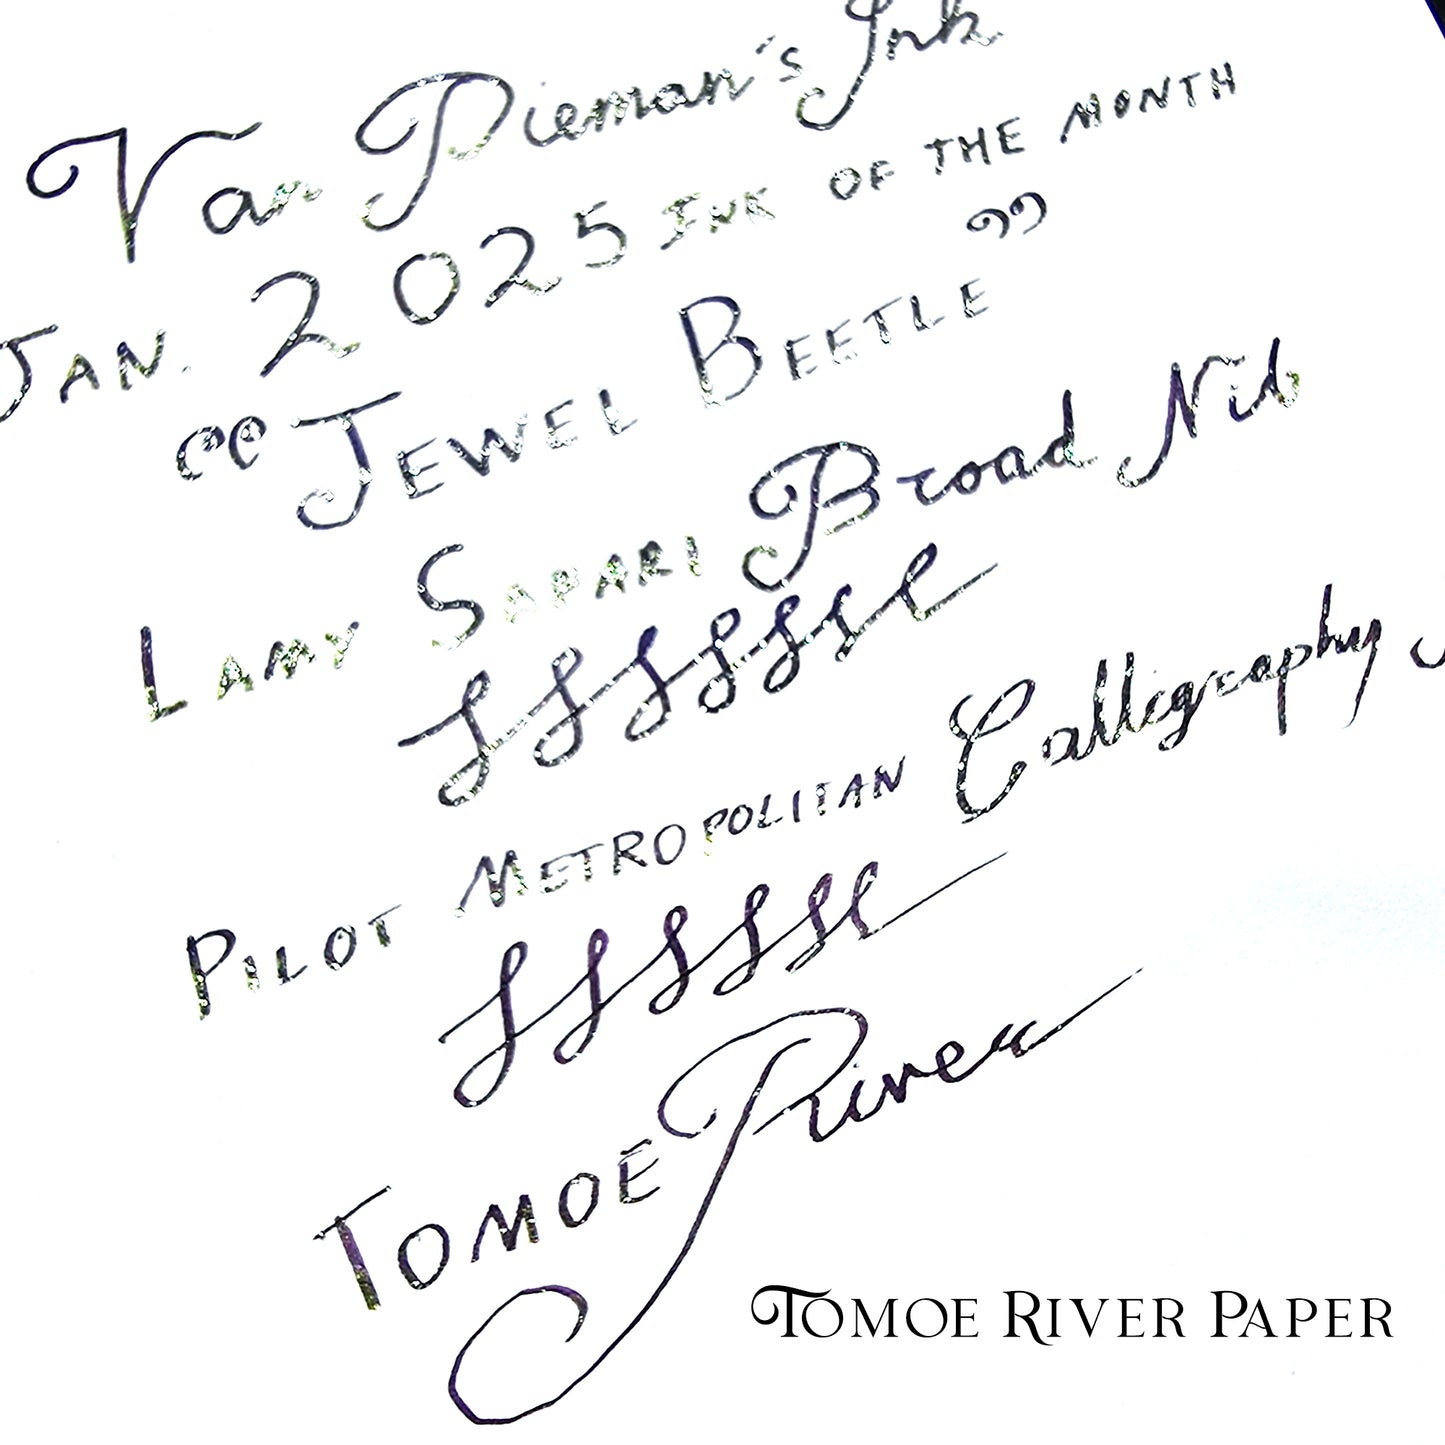 Van Dieman's Ink
JAN. 2025 INK OF THE MONTH
“JEWEL BEETLE”
LAMY SAFARI Broad Nib
PILOT METROPOLITAN Calligraphy
TOMOE River
TOMOE RIVER PAPER